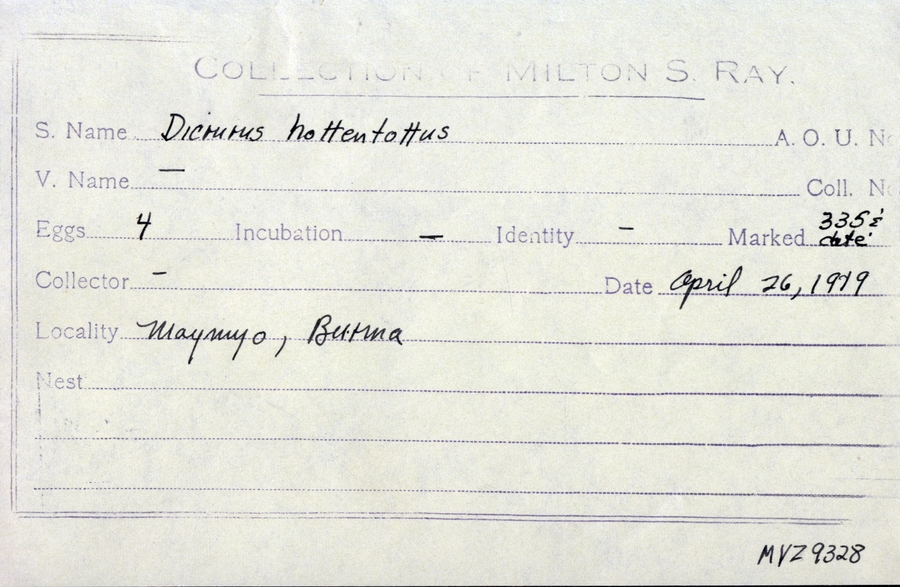 COLLECTION OF MILTON S. RAY.
S. Name Dicrurus hottentottus A. O. U. No
V. Name — Coll. No
Eggs 4 Incubation — Identity – Marked 335 & date.
Collector – Date April 26, 1919
Locality Maymyo, Burma
Nest
MVZ 9328